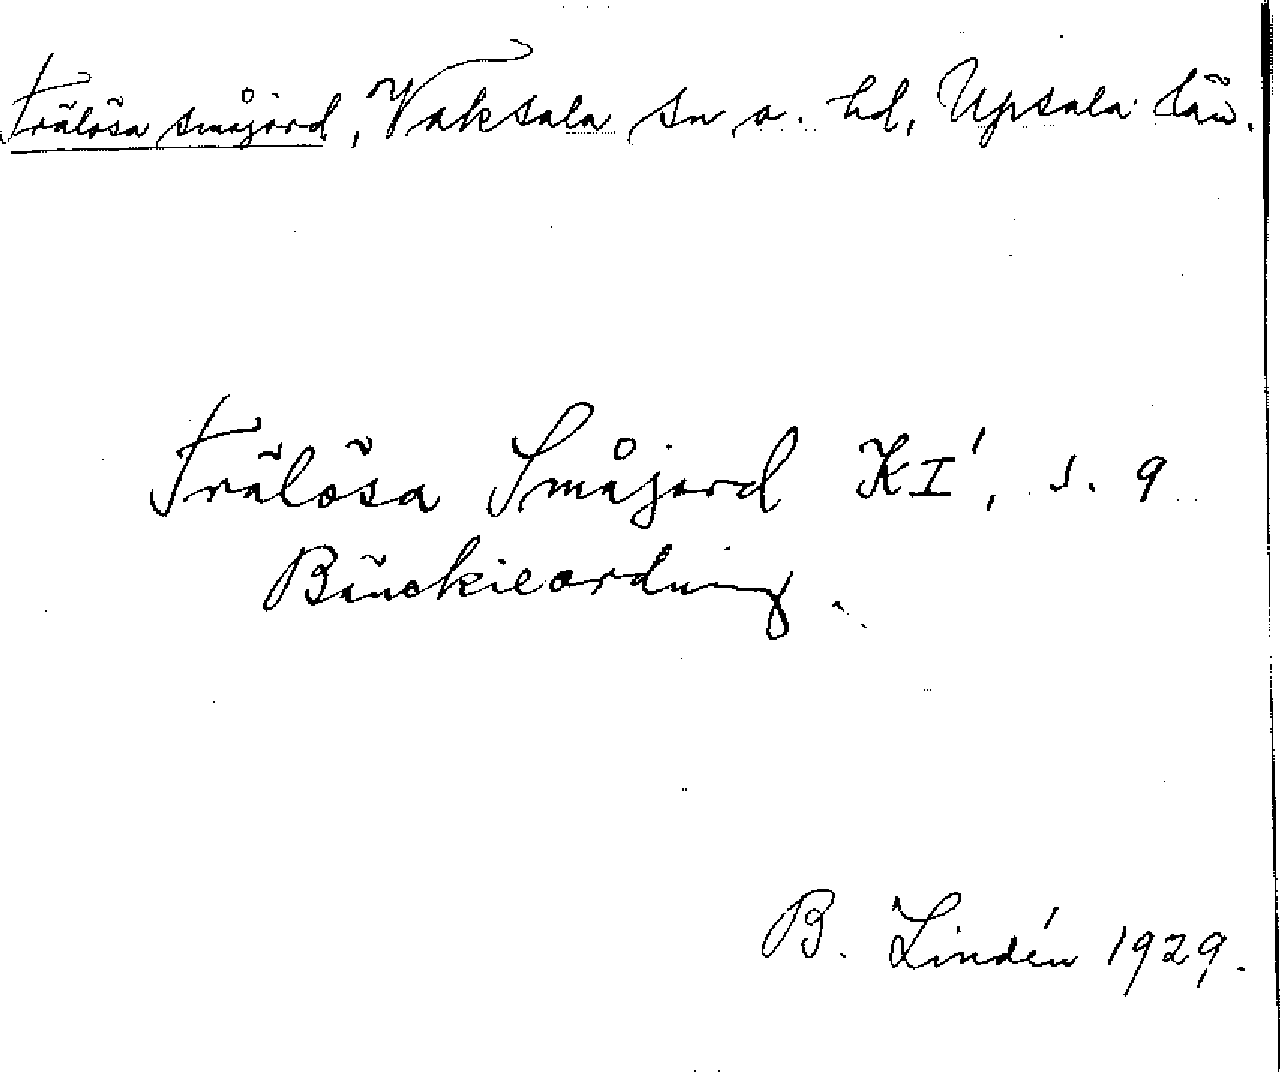 Frälösa småjord, Vaksala sn o. hd, Upsala län.
Frälösa Småjord KI', s. 9
Bänckieordning
B. Lindén 1929.